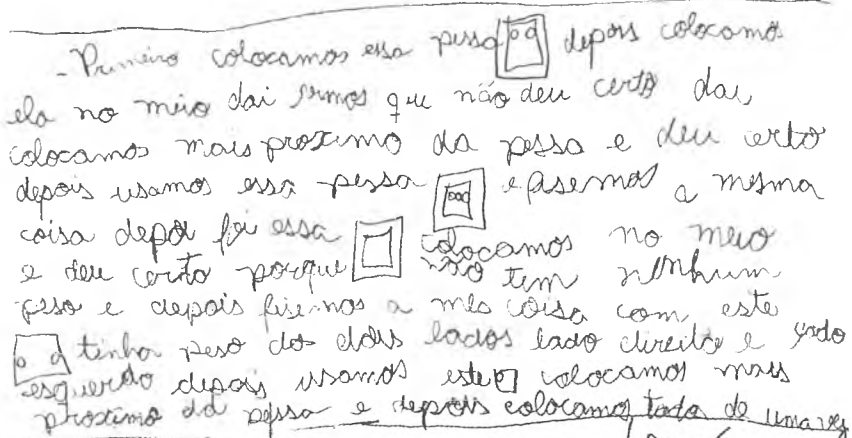 - Primeiro colocamos essa pessa depois colocamos
ela no meio dai vimos que não deu certo dai,
colocamos mais proximo da pessa e deu certo
depois usamos essa pessa e fisemos a mesma
coisa depoi foi essa colocamos no meio
e deu certo porque não tem nenhum
peso e depois fisemos a mes coisa com este
tinha peso dos dois lados lado direito e lado
esquerdo depois usamos este colocamos mais
proximo da pessa e depois colocamos toda de uma vez